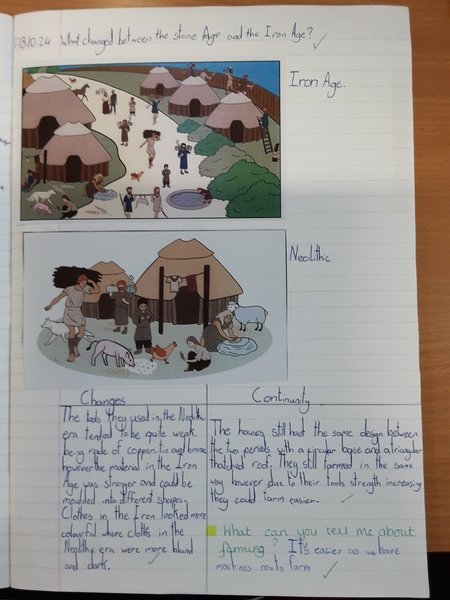 08.10.24 What changed between the stone Age and the Iron Age?
Iron Age.
Neolithic
Changes
The tools they used in the Neolithic
era tended to be quite weak
being made of copper, tin and bronze
however the material in the Iron
Age was stronger and could be
moulded into different shapes.
Clothes in the Iron looked more
colourful where cloths in the
Neolithy era were more bland
and dark.
Continuity
The houses still had the same design between
the two periods with a circular base and a triangular
thatched roof. They still farmed in the same
way however due to their tools strength increasing
they could farm easier.
What can you tell me about
farming? It's easier as we have
machines could farm